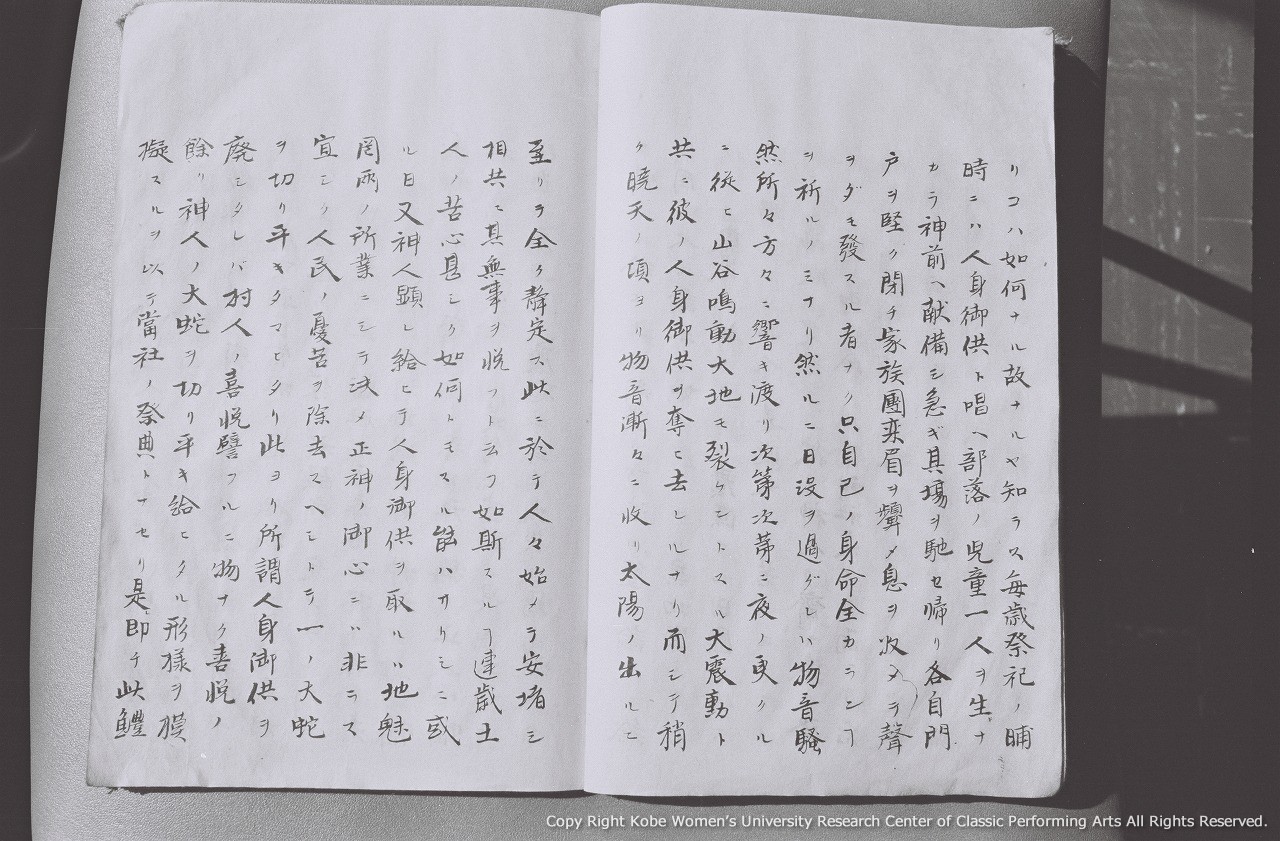 リコハ如何ナル故ナルヤ知ラス毎歳祭祀ノ晡
時ニハ人身御供ト唱ヘ部落ノ児童一人ヲ生ナ
カラ神前ヘ献備シ急ギ其場ヲ馳セ帰リ各自門
戸ヲ堅ク閉チ家族團栾眉ヲ顰メ息ヲ収メヲ聲
ヲダモ發スル者ナク只自己ノ身命全カランヿ
ヲ祈ルノミナリ然ルニ日没ヲ過グレハ物音騒
然所々方々ニ響キ渡リ次第次第ニ夜ノ更クル
ニ従ヒ山谷鳴動大地モ裂ケントスル大震動ト
共ニ彼ノ人身御供ヲ奪ヒ去レルナリ而シテ稍
ク暁天ノ頃ヨリ物音漸々ニ收リ太陽ノ出ルニ
至リテ全ク静定ス此ニ於テ人々始メテ安堵シ
相共ニ其無事ヲ悦フト云フ如斯スルヿ連歳土
人ノ苦心甚シク如何トモスル能ハサリシニ或
ル日又神人顕レ給ヒテ人身御供ヲ取ルハ地魅
罔両ノ所業ニシテ决メ正神ノ御心ニハ非ラス
宜シク人民ノ憂苦ヲ除去スヘシトテ一ノ大蛇
ヲ切リ平キタマヒタリ此ヨリ所謂人身御供ヲ
廃シタレバ村人ノ喜悦譬フルニ物ナク喜悦ノ
餘リ神人ノ大蛇ヲ切リ平キ給ヒタル形様ヲ模
擬スルヲ以テ當社ノ祭典トナセリ是即チ此鱧
Copy Right Kobe Women's University Research Center of Classic Performing Arts All Rights Reserved.